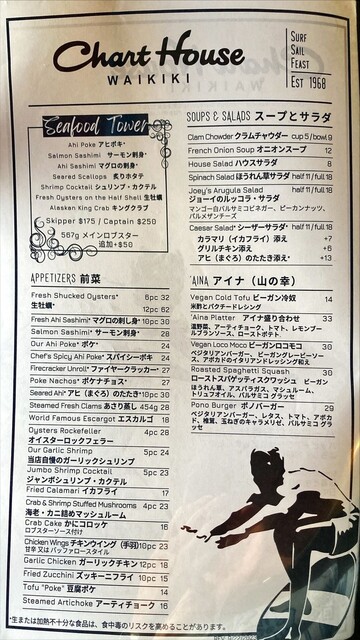 Chart House
WAIKIKI
SURF
SAIL
FEAST
EST 1968
Seafood Tower
Ahi Poke アヒポキ*
Salmon Sashimi サーモン刺身*
Ahi Sashimi マグロの刺身*
Seared Scallops 炙りホタテ
Shrimp Cocktail シュリンプ・カクテル
Fresh Oysters on the Half Shell 生牡蠣*
Alaskan King Crab キングクラブ
Skipper $175 / Captain $250
567g メインロブスター
追加+$50
APPETIZERS 前菜
Fresh Shucked Oysters* 6pc 32
生牡蠣* 12pc 62
Fresh Ahi Sashimi* マグロの刺し身*10pc 30
Salmon Sashimi* サーモン刺身* 28
Our Ahi Poke* ポケ* 24
Chef's Spicy Ahi Poke* スパイシーポキ 24
Firecracker Unroll* ファイヤークラッカー* 27
Poke Nachos* ポケナチョス* 27
Seared Ahi* アヒ (まぐろ) のたたき*10pc 30
Steamed Fresh Clams あさり蒸し 454g 28
World Famous Escargot エスカルゴ 18
Oysters Rockefeller 4pc 28
オイスターロックフェラー
Our Garlic Shrimp 5pc 24
当店自慢のガーリックシュリンプ
Jumbo Shrimp Cocktail 5pc 23
ジャンボシュリンプ・カクテル
Fried Calamari イカフライ 17
Crab & Shrimp Stuffed Mushrooms 4pc 23
海老・カニ詰めマッシュルーム
Crab Cake かにコロッケ 18
ロブスターソース付け
Chicken Wings チキンウイング (手羽)10pc 23
甘辛 又は バッファロースタイル
Garlic Chicken ガーリックチキン 12pc 18
Fried Zucchini ズッキーニフライ 10pc 15
Tofu "Poke" 豆腐ポケ 14
Steamed Artichoke アーティチョーク 16
SOUPS & SALADS スープとサラダ
Clam Chowder クラムチャウダー cup 5/bowl 9
French Onion Soup オニオンスープ 12
House Salad ハウスサラダ 8
Spinach Salad ほうれん草サラダ half 11/full 18
Joey's Arugula Salad half 11/full 18
ジョーイのルッコラ・サラダ
マンゴー白バルサミコビネガー、ピーカンナッツ、
パルメザンチーズ
Caesar Salad* シーザーサラダ* half 11/full 18
カラマリ (イカフライ) 添え +7
グリルチキン添え +6
アヒ (まぐろ) のたたき*添え +13
'AINA アイナ (山の幸)
Vegan Cold Tofu ビーガン冷奴 14
米酢とパクチードレシング
'Aina Platter アイナ盛り合わせ 33
温野菜、アーティチョーク、トマト、レモンブー
ルブランソース、ローストポテト
Vegan Loco Moco ビーガンロコモコ 30
ベジタリアンバーガー、ビーガングレービーソー
ス、アボカドのイタリアンドレッシング和え
Roasted Spaghetti Squash 30
ローストスパゲッティスクワッシュ ビーガン
ほうれん草、アスパラガス、マシュルーム、
トリュフオイル、バルサミコ グラッセ
Pono Burger ポノバーガー 29
ベジタリアンバーガー、レタス、トマト、アボカ
ド、椎茸、玉ねぎのキャラメリゼ、バルサミコ グラ
ッセ
*生または加熱不十分な食品は、食中毒のリスクを高めることがあります。